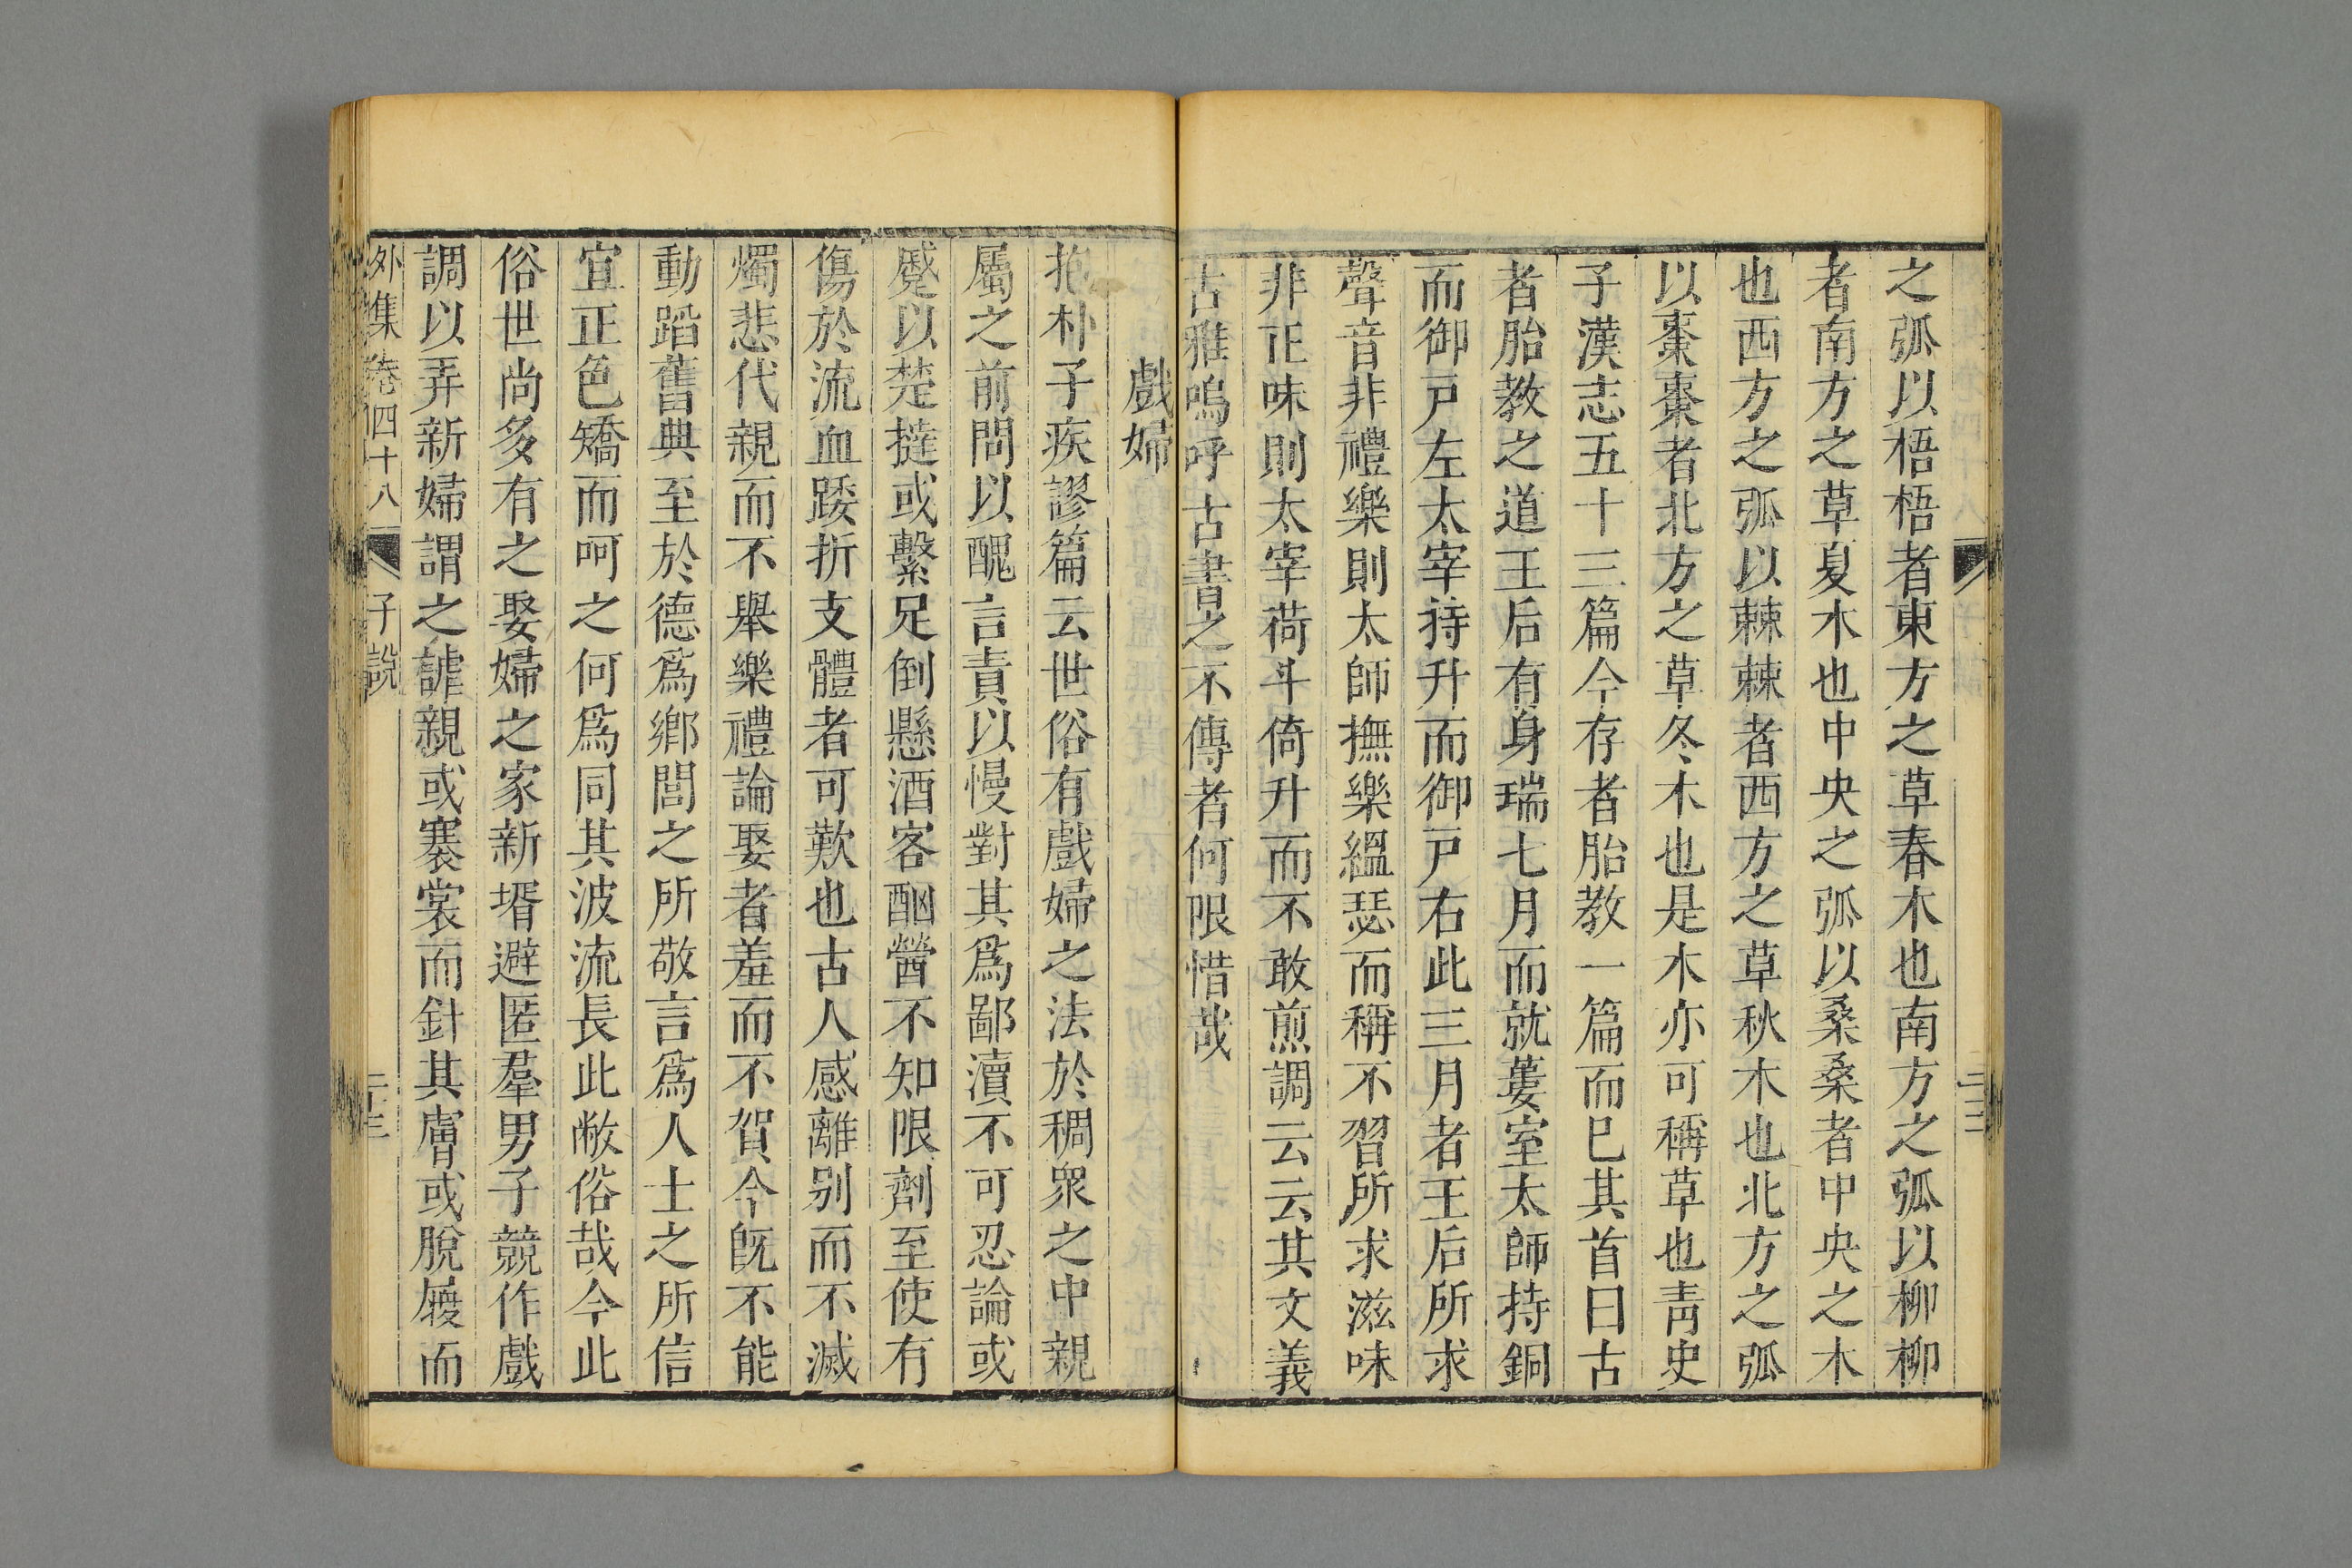 之弧以梧梧者東方之草春木也南方之弧以柳柳
者南方之草夏木也中央之弧以桑桑者中央之木
也西方之弧以棘棘者西方之草秋木也北方之弧
以棗棗者北方之草冬木也是木亦可稱草也青史
子漢志五十三篇今存者胎教一篇而已其首曰古
者胎教之道王后有身瑞七月而就蔞室太師持銅
而御戸左太宰持升而御戸右此三月者王后所求
聲音非禮樂則太師撫樂縕瑟而稱不習所求滋味
非正味則太宰荷斗倚升而不敢煎調云云其文義
古雅嗚呼古書之不傳者何限惜哉
戲婦
抱朴子疾謬篇云世俗有戲婦之法於稠衆之中親
屬之前問以醜言責以慢對其爲鄙瀆不可忍論或
蹙以楚撻或繫足倒懸酒客酗醟不知限劑至使有
傷於流血踒折支體者可歎也古人感離别而不滅
燭悲代親而不舉樂禮論娶者羞而不賀今旣不能
動蹈舊典至於德爲鄉閭之所敬言爲人士之所信
宜正色矯而呵之何爲同其波流長此敝俗哉今此
俗世尚多有之娶婦之家新壻避匿羣男子競作戲
調以弄新婦謂之謔親或褰裳而針其膚或脫屨而
外集卷四十八 子説